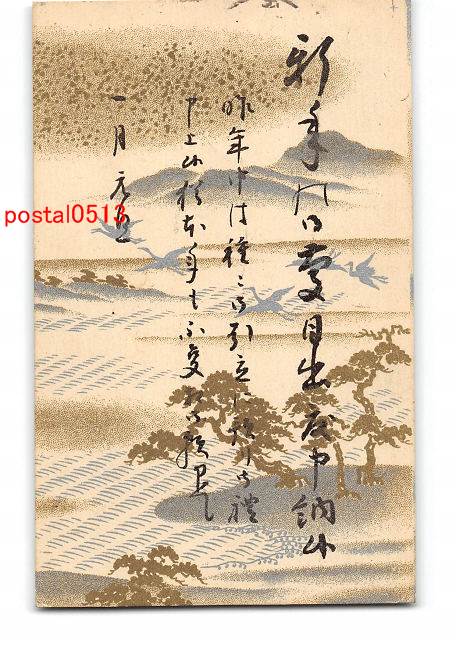 新年の御慶目出度申納候
昨年中は種々御引立に預り御礼
申上候猶本年も不変
一月元旦
postal0513